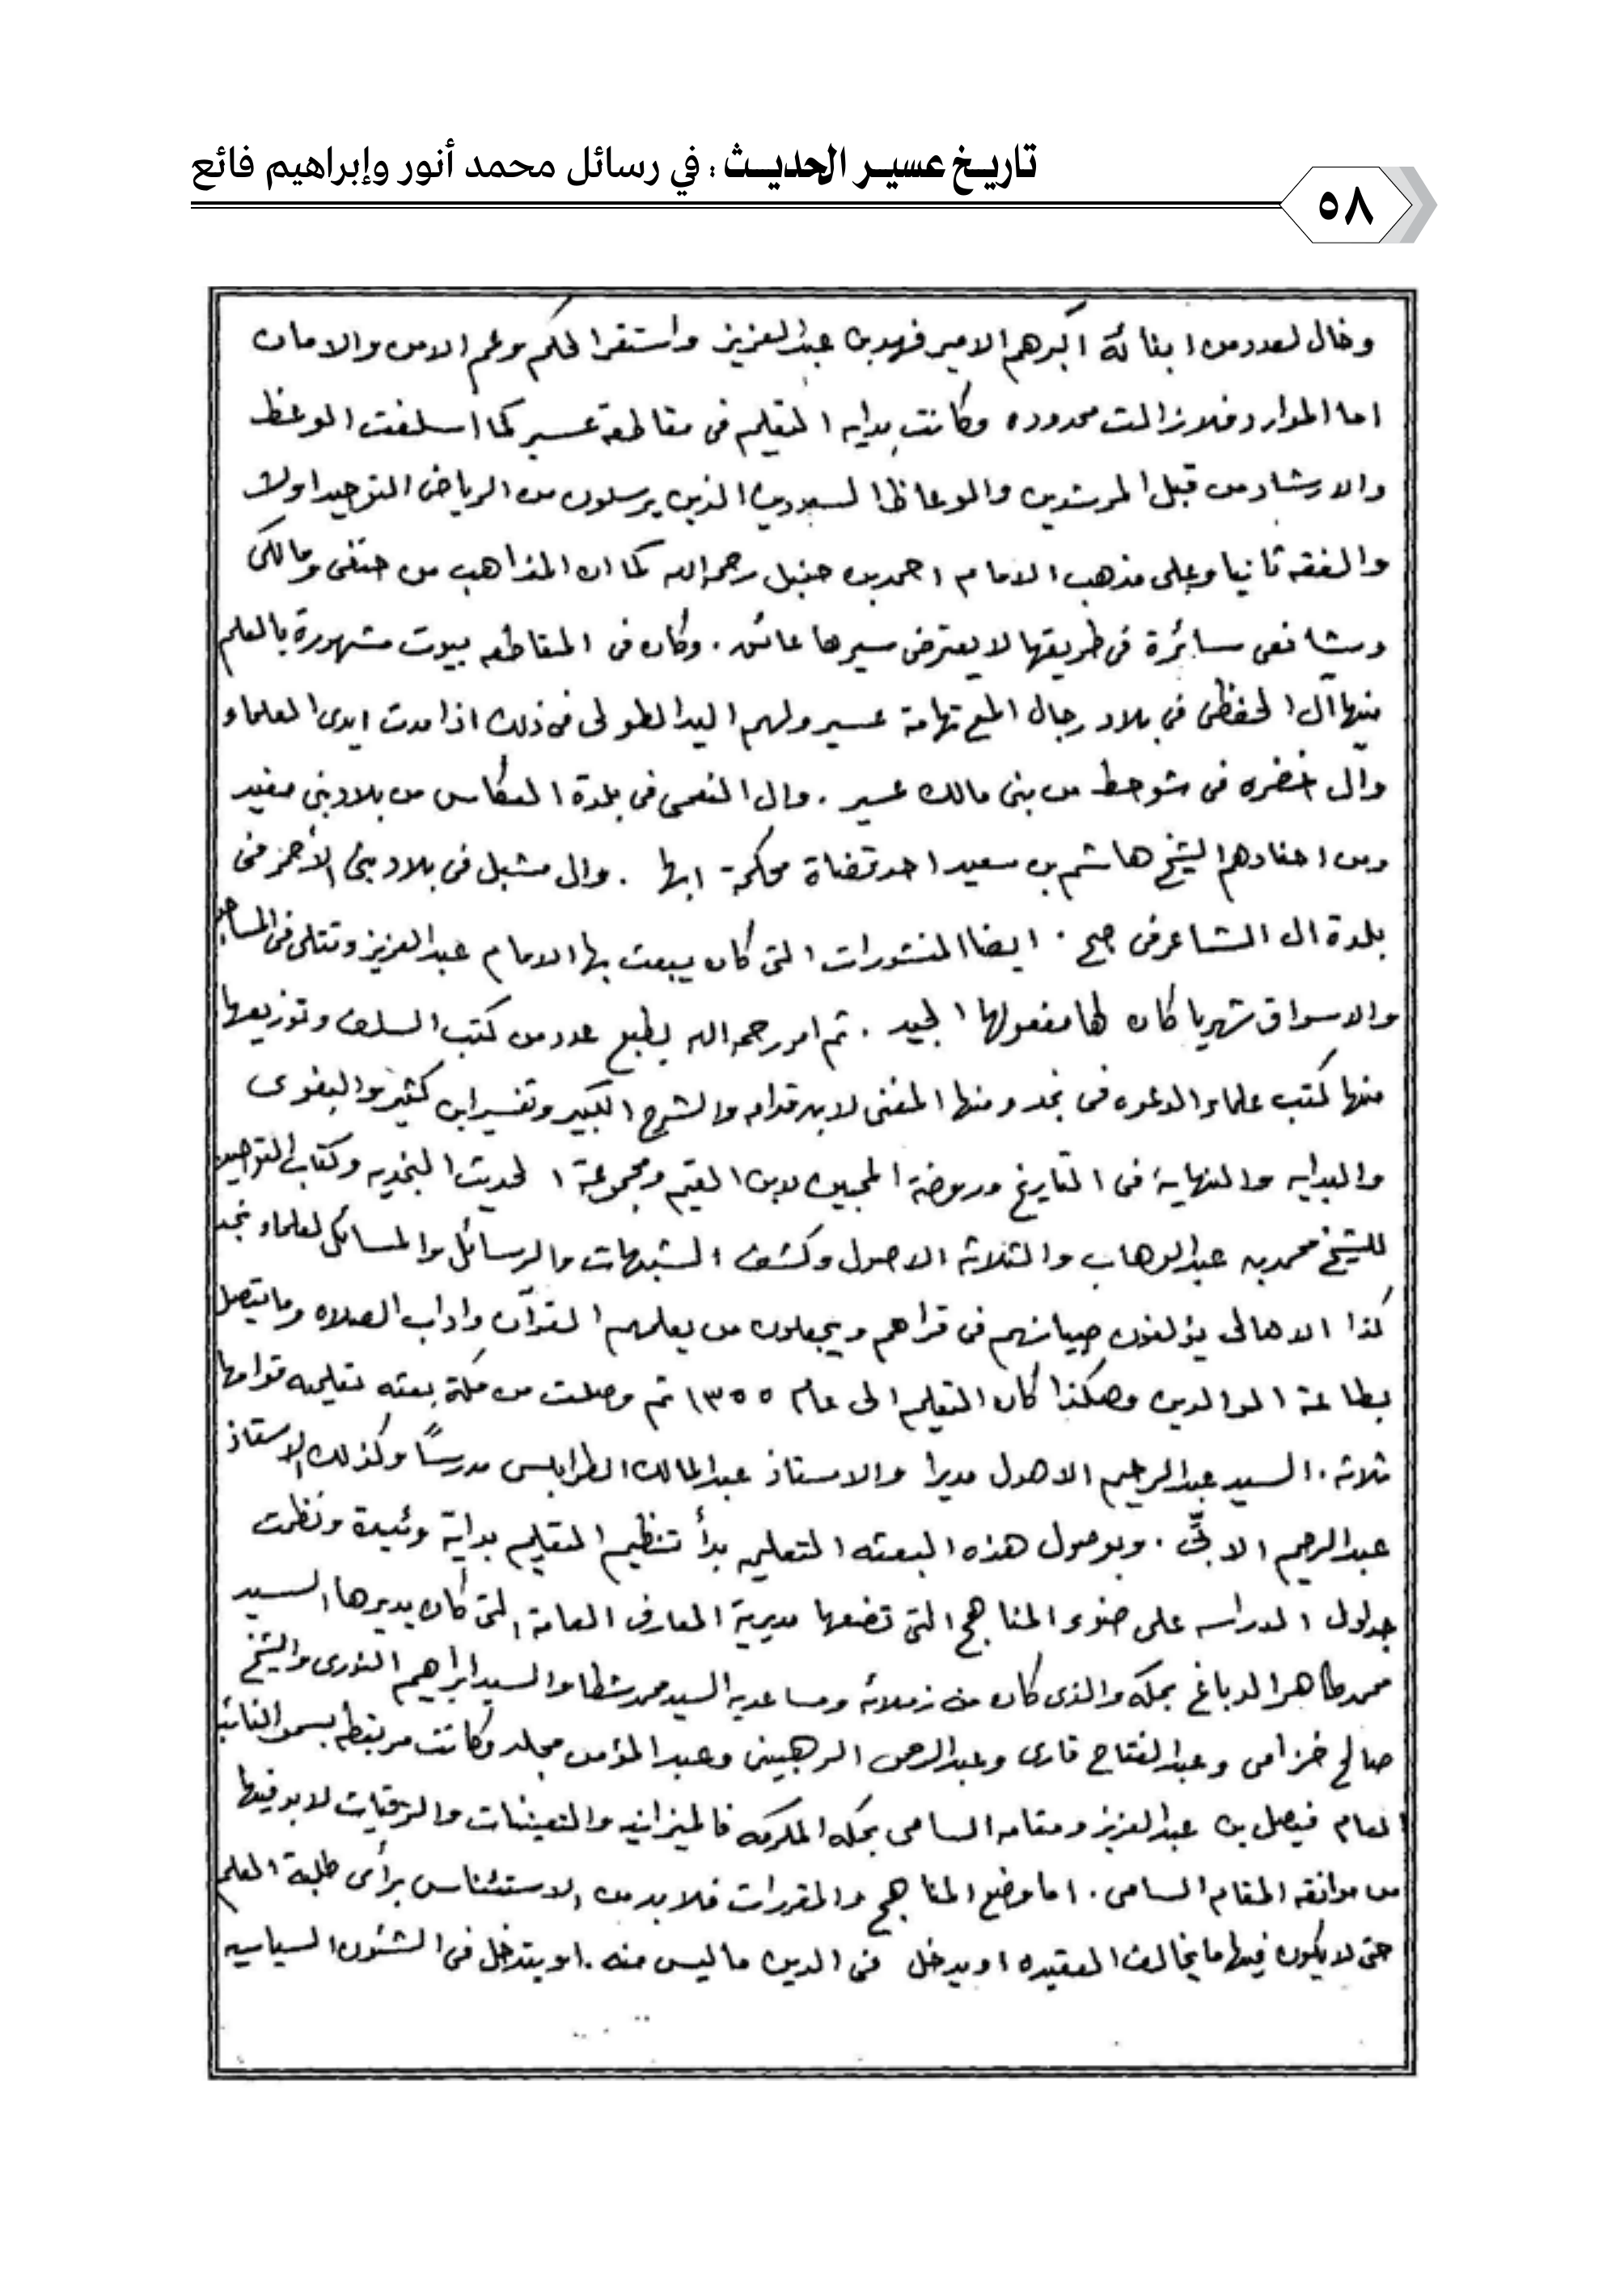 تاريخ عسير الحديث : في رسائل محمد أنور وإبراهيم فائع
٥٨
وخال لعدد من ابنائه اكبرهم الامير فهد بن عبدالعزيز واستقر الحكم وعم الامن والامان
اما الموارد فلا زالت محدوده وكانت بدايه التعليم فى مقاطعة عسير كما اسلفت الوعظ
والارشاد من قبل المرشدين والوعاظ السعوديين الذين يرسلون من الرياض التوحيد اولا
والفقه ثانيا وعلى مذهب الامام احمد بن حنبل رحمه الله كما ان المذاهب من حنفى ومالكى
وشافعى سائرة فى طريقها لا يعترض سيرها عائق . وكان فى المقاطعه بيوت مشهورة بالعلم
منها آل الحفظى فى بلاد رجال المع تهامة عسير ولهم اليد الطولى فى ذلك اذا مدت ايدى العلماء
وال خضره فى شوحط من بنى مالك عسير . وال النعمى فى بلدة العكاس من بلاد بنى مغيد
ومن احفادهم الشيخ هاشم بن سعيد احد قضاة محكمة ابها . وال مشبل فى بلاد بنى الأحمر فى
بلدة ال الشاعر فى صبح . ايضا المنشورات التى كان يبعث بها الامام عبدالعزيز وتتلى فى المساجد
والاسواق شهريا كان لها مفعولها الجيد . ثم امر رحمه الله بطبع عدد من كتب السلف وتوزيعها
منها كتب علماء الدعوه فى نجد ومنها المغنى لابن قدامه والشرح الكبير وتفسير ابن كثير والبغوى
والبدايه والنهاية فى التاريخ وروضة المحبين لابن القيم ومجموعة الحديث النجديه وكتاب التوحيد
للشيخ محمد بن عبدالوهاب والثلاثه الاصول وكشف الشبهات والرسائل والمسائل لعلماء نجد
كذا الاهالى يؤلفون صبيانهم فى قراهم ويجعلون من يعلمهم القرآن واداب الصلاه وما يتصل
بطاعة الوالدين وهكذا كان التعليم الى عام ١٣٥٥ ثم وصلت من مكة بعثه تعليميه قوامها
ثلاثه . السيد عبدالرحيم الاهدل مديرا والاستاذ عبدالمالك الطرابلسى مدرسًا وكذلك الاستاذ
عبدالرحيم الابىّ . وبوصول هذه البعثه التعليميه بدأ تنظيم التعليم بداية وئيدة ونظمت
جداول الدراسه على ضوء المناهج التى تضعها مديرية المعارف العامة التى كان يديرها السيد
محمد طاهر الدباغ بمكه والذى كان من زملائه ومساعديه السيد محمد شطا والسيد ابراهيم النورى والشيخ
صالح خزامى وعبدالفتاح قارى وعبدالرحمن الرهبينى وعبدالمؤمن مجلد وكانت مرتبطه بسمو النائب
العام فيصل بن عبدالعزيز ومقامه السامى بمكه المكرمه فالميزانيه والتعيينات والترقيات لابد فيها
من موافقه المقام السامى . اما وضع المناهج والمقررات فلا بد من الاستئناس برأى طلبة العلم
حتى لا يكون فيها ما يخالف العقيده او يدخل فى الدين ما ليس منه . او يتدخل فى الشئون السياسيه